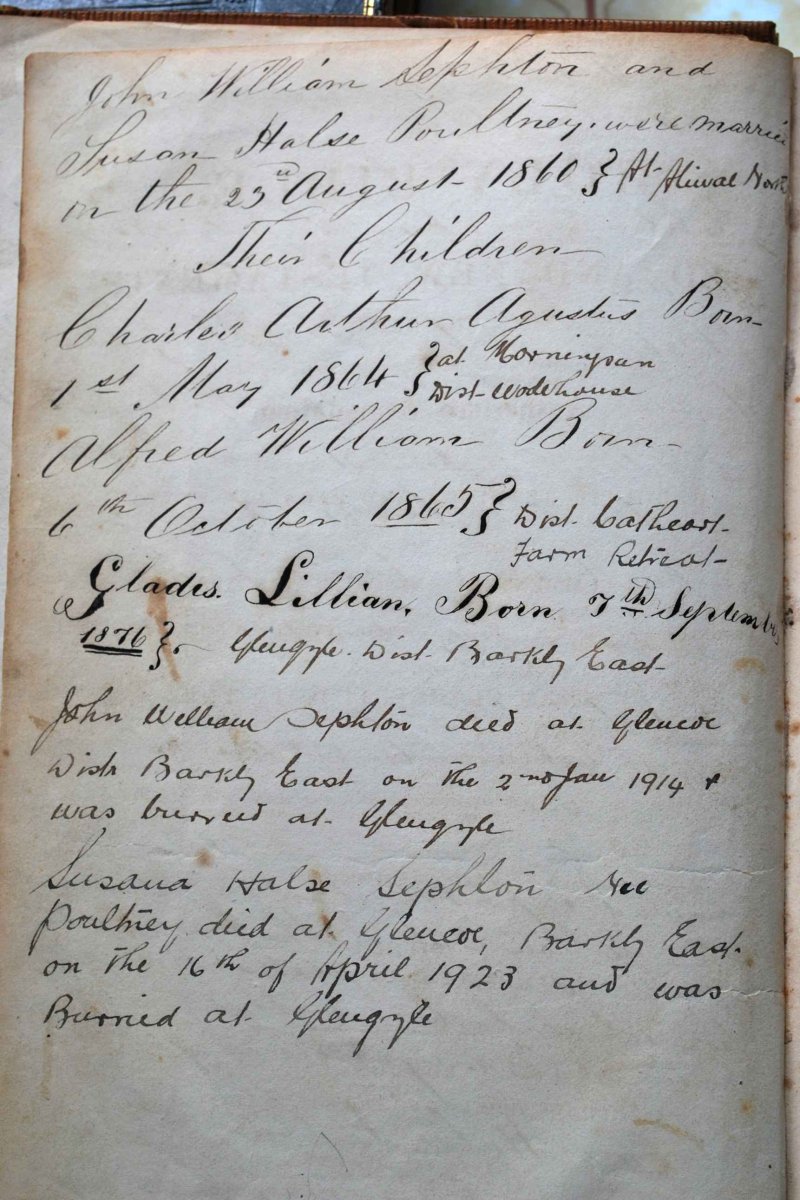 John William Sephton and
Susan Halse Poultney. were married
on the 23rd August 1860 } At Aliwal North
Their Children
Charles Arthur Agustus Born
1st May 1864 } at Morningsun
Dist Wodehouse
Alfred William Born
6th October 1865 } Dist. Cathcart
Farm Retreat
Glades. Lillian. Born 7th September
1876 }. Glengyle. Dist. Barkly East
John William Sephton died at Glencoe
Dist Barkly East on the 2nd Jan 1914 &
was burried at Glengyle
Susana Halse Sephton Nee
Poultney died at Glencoe, Barkly East
on the 16th of April 1923 and was
Burried at Glengyle